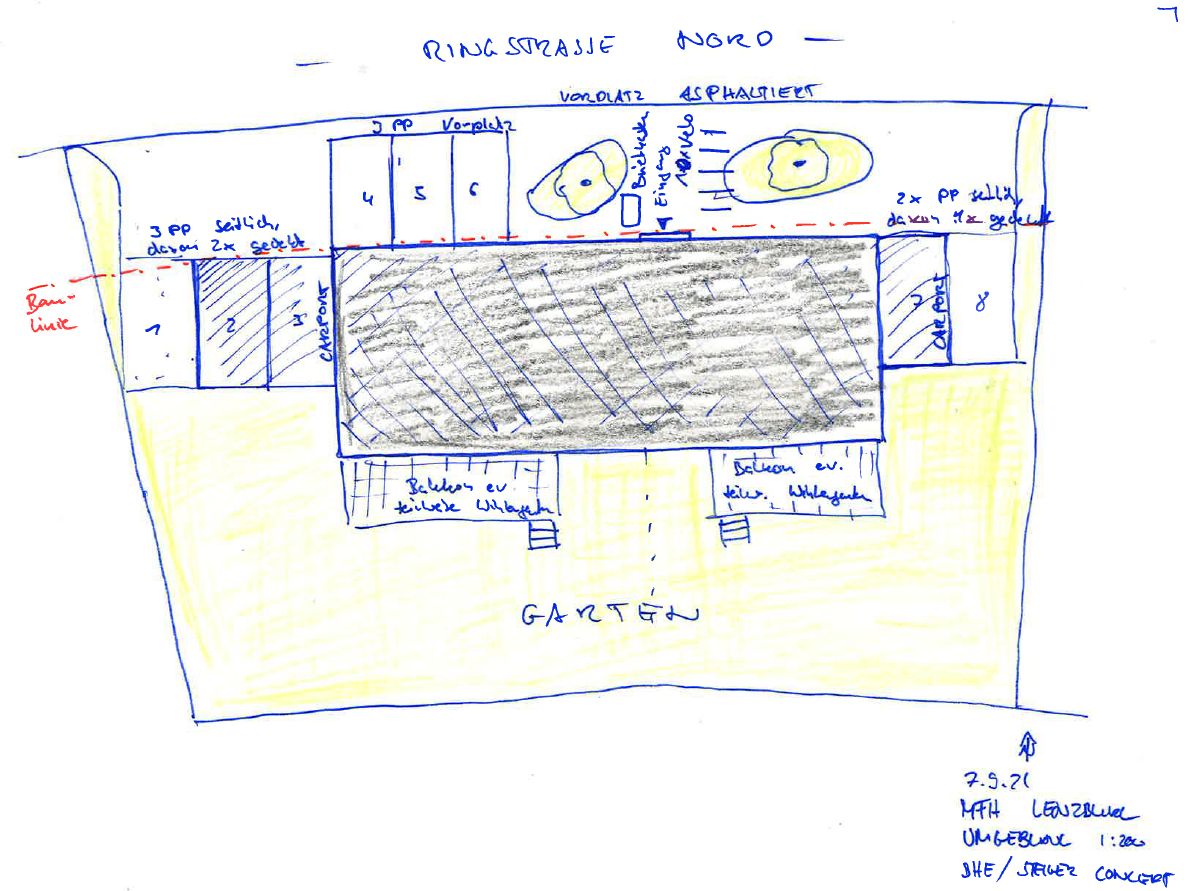 RINGSTRASSE NORD
VORPLATZ ASPHALTIERT
3 PP Vorplatz
4
5
6
Briefkasten
Eingang
10x Velo
2x PP seitlich,
davon 1x gedeckt
3 PP seitlich,
davon 2x gedeckt
Bau-
linie
1
2
3
CARPORT
7
CARPORT
8
Balkon ev.
teilweise Wintergarten
Balkon ev.
teilw. Wintergarten
GARTEN
7.9.21
MFH LENZBURG
UMGEBUNG 1:200
DHE/STEIGER CONCEPT